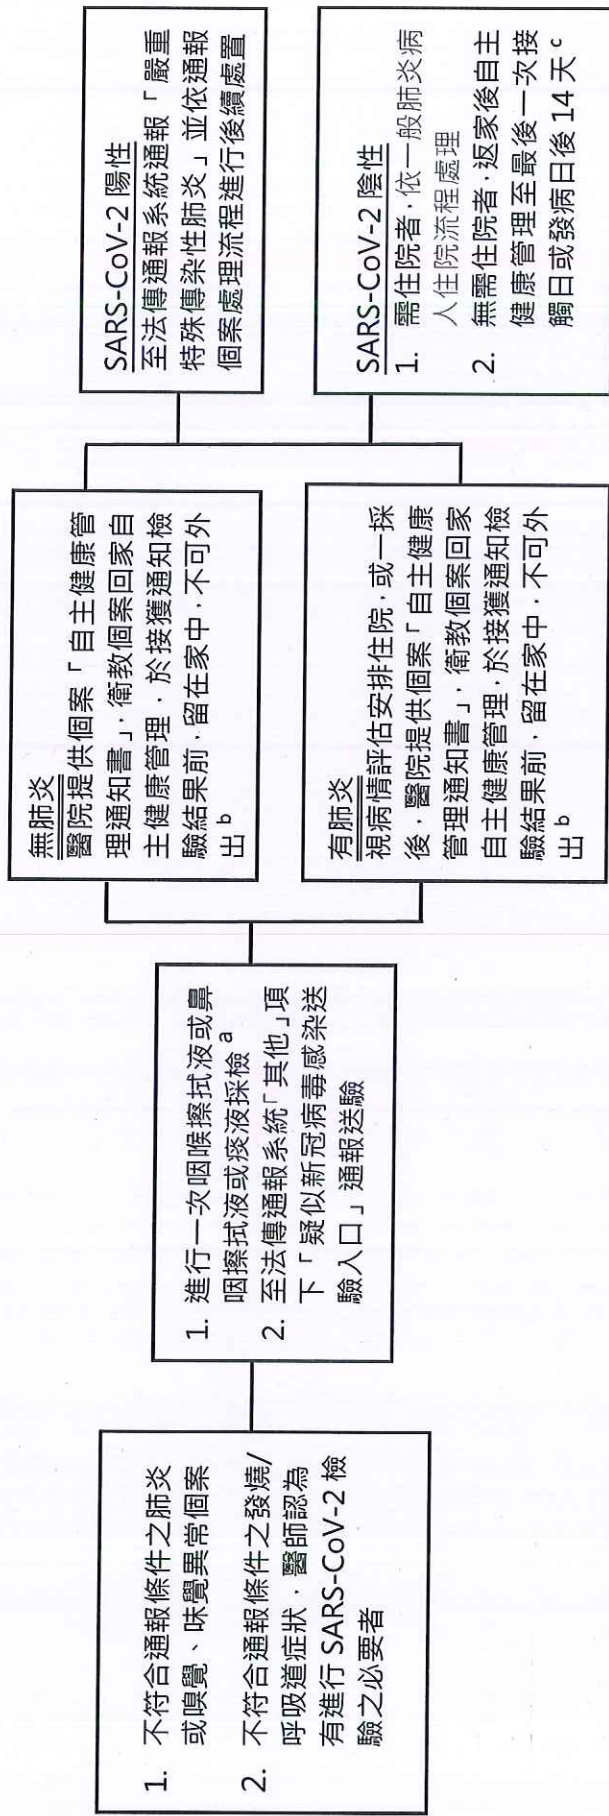 1. 不符合通報條件之肺炎
或嗅覺、味覺異常個案
2. 不符合通報條件之發燒/
呼吸道症狀，醫師認為
有進行 SARS-CoV-2 檢
驗之必要者
1. 進行一次咽喉擦拭液或鼻
咽擦拭液或痰液採檢 a
2. 至法傳通報系統「其他」項
下「疑似新冠病毒感染送
驗入口」通報送驗
無肺炎
醫院提供個案「自主健康管
理通知書」，衛教個案回家自
主健康管理，於接獲通知檢
驗結果前，留在家中，不可外
出 b
有肺炎
視病情評估安排住院，或一採
後，醫院提供個案「自主健康
管理通知書」，衛教個案回家
自主健康管理，於接獲通知檢
驗結果前，留在家中，不可外
出 b
SARS-CoV-2 陽性
至法傳通報系統通報「嚴重
特殊傳染性肺炎」並依通報
個案處理流程進行後續處置
SARS-CoV-2 陰性
1. 需住院者，依一般肺炎病
人住院流程處理
2. 無需住院者，返家後自主
健康管理至最後一次接
觸日或發病日後 14 天 c